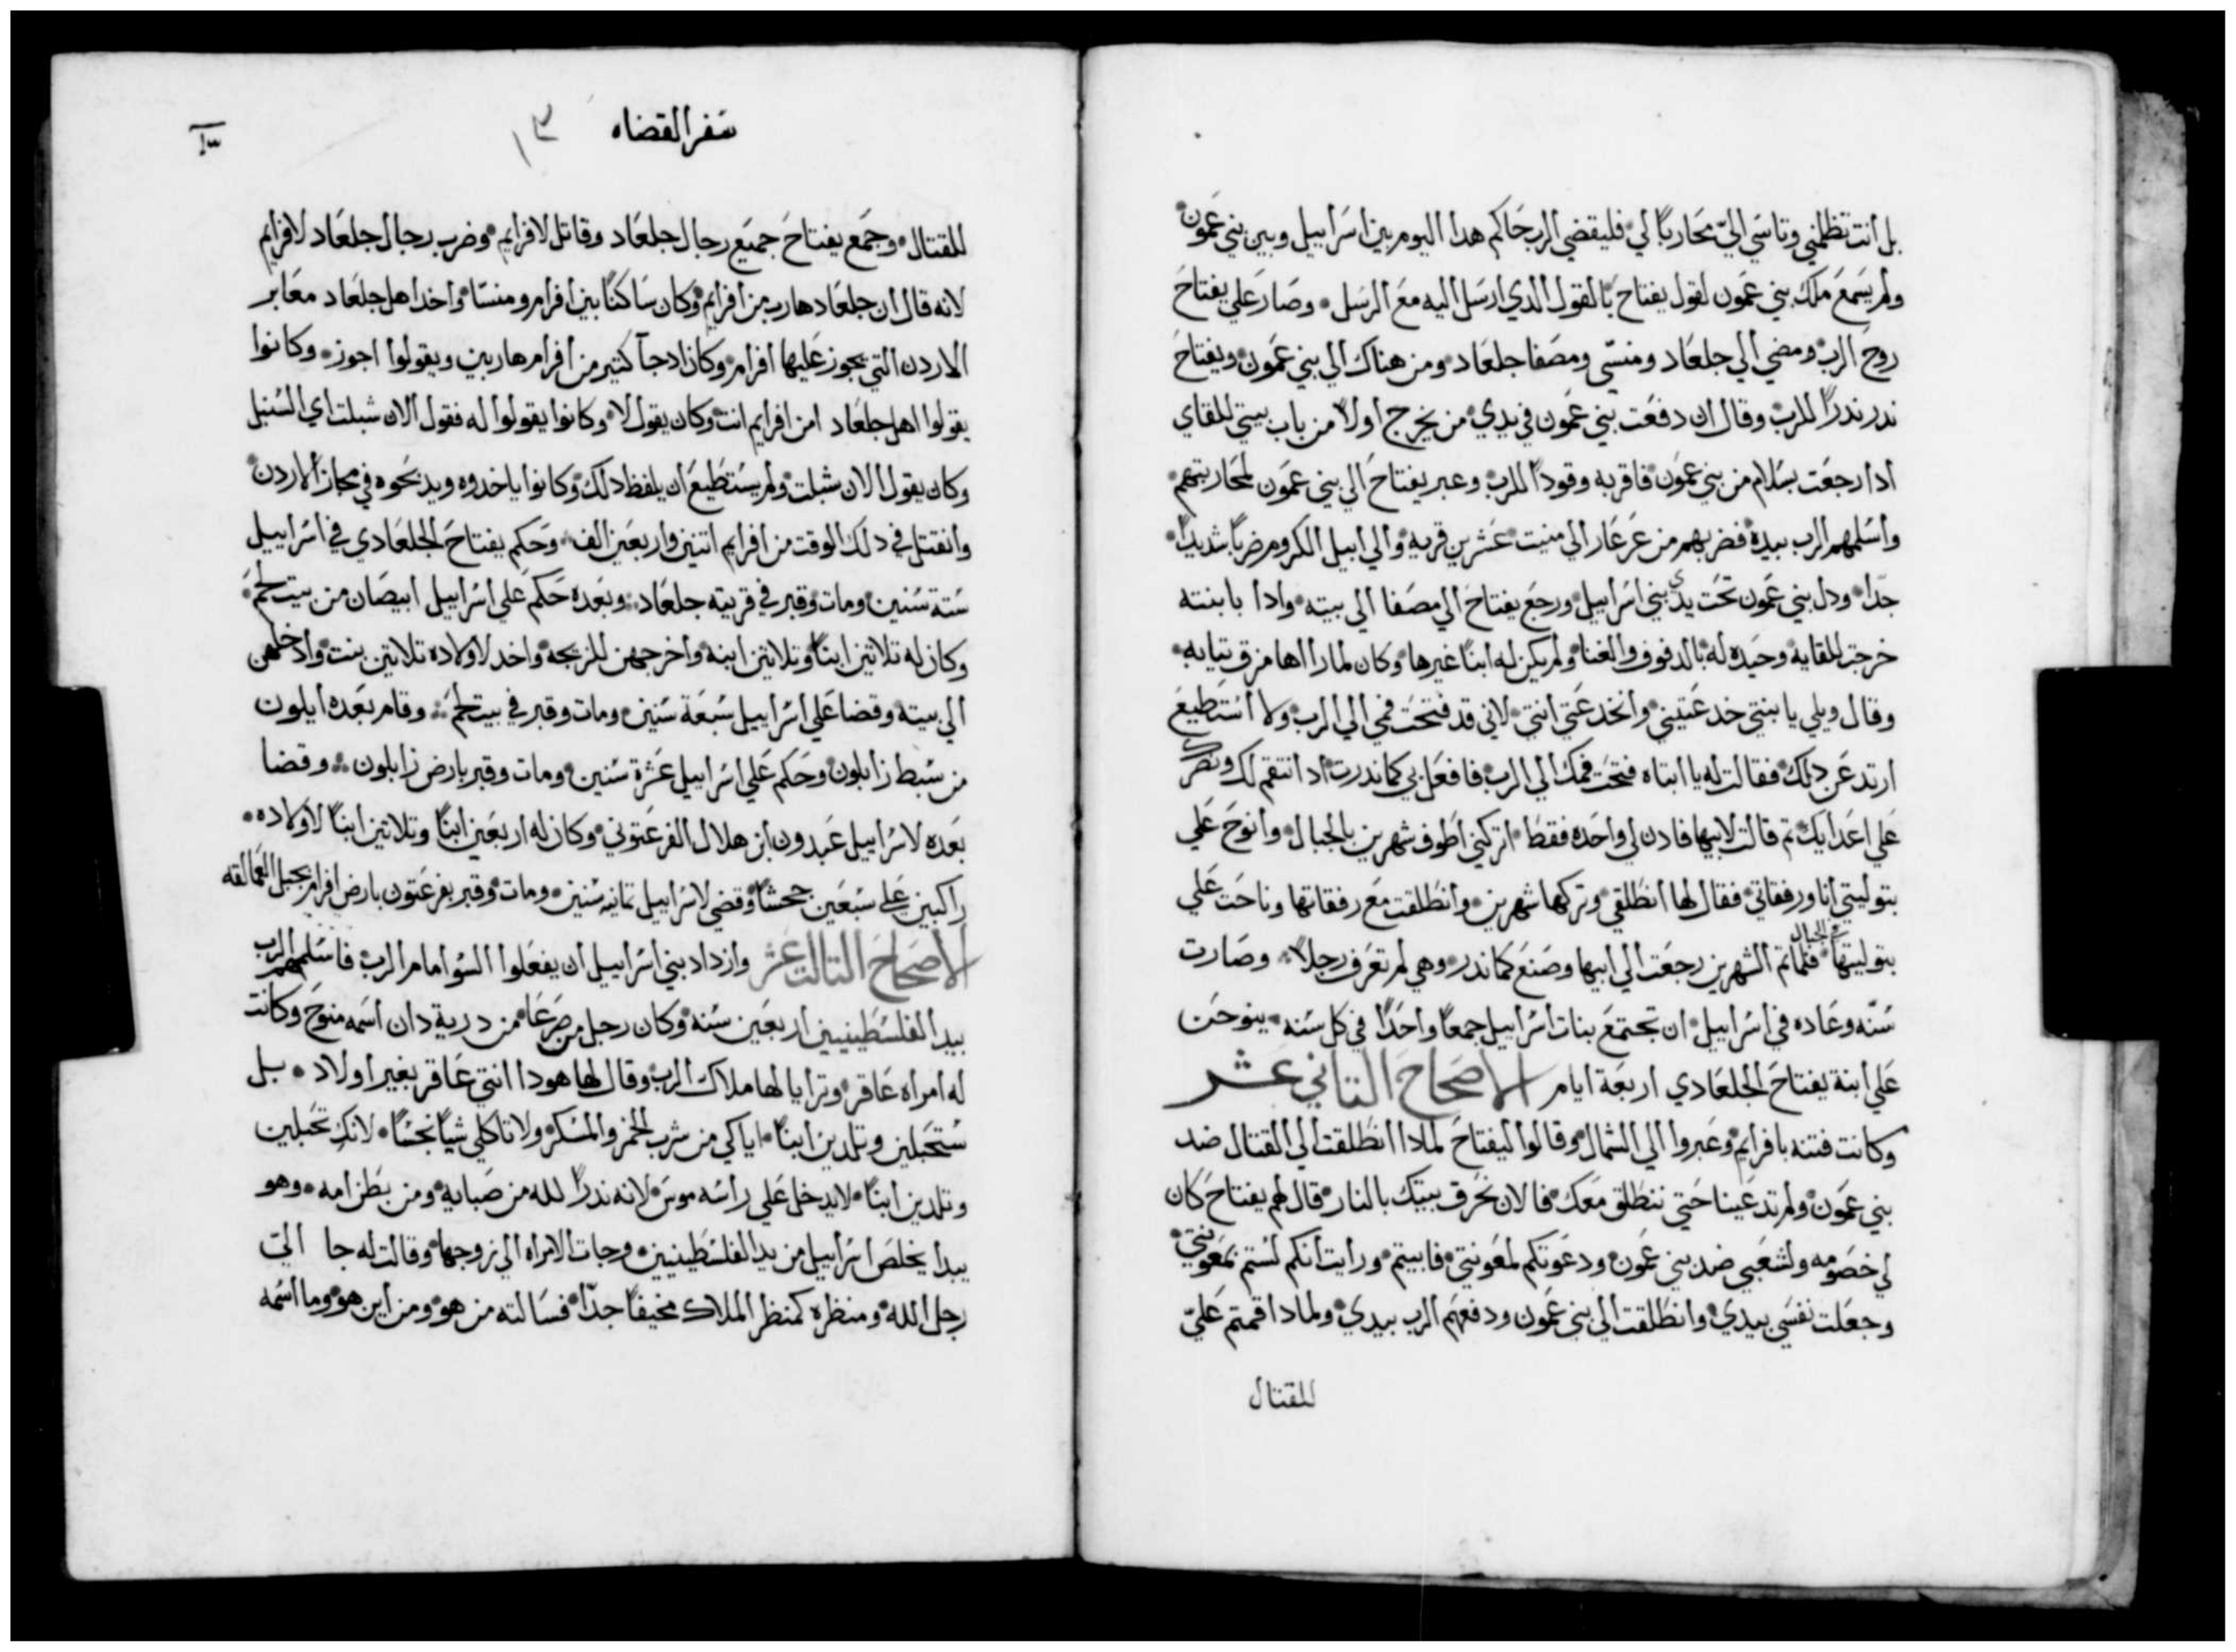 بل أنت تظلمني وتاسَي اليّ محَاربًا لي فليقضي الرب حَاكم هدا اليوم بين اسَرأييل وبين بني عَمون
ولم يسَمعَ ملك بني عمَون لقول يفتاحَ بالقول الدي ارسَل اليه معَ الرسَل وصَار عَلي يفتاحَ
روحَ الرب ومضي الي جلعَاد ومنسّي ومصَفا جلعَاد ومن هناك الي بني عمَون ويفتاحَ
ندر ندرًا للرب وقال ان دفعَت بني عمَون في يدي من يخرج أولاً من باب بيتي للقاي
ادا رجعَت بسَلام من بني عمَون فاقربه وقودًا للرب وعبر يفتاحَ الي بني عمَون لمحَاربتهم
وأسَلمهم الرب بيده فضربهم من عَرعَار الي منيت عَشرين قريه والي ابيل الكروم ضربًا شديدًا
جدّا ودل بني عمَون تحَت يدي بني اسَرأييل ورجعَ يفتاحَ الي مصَفا الي بيته وادا بابنته
خرجت للقايه وحَيده له بالدفوف والغنا ولم يكن له أبنًا غيرها وكان لما رأاها مزق تيابه
وقال ويلي يا بنتي خدعَتيني وانخدعَتي انتي لاني قد فتحَت فمي الي الرب ولا أسَتطيعَ
ارتد عَن دلك فقالت له يا ابتاه فتحَت فمك الي الرب فافعَل بي كما ندرت اد انتقم لك ونصَرك
عَلي اعَدايك تم قالت لابيها فادن لي واحَده فقط اتركني اطوف شهرين بالجبال وأنوحَ عَلي
بتوليتي أنا ورفقاتي فقال لها انطَلقي وتركها شهرين وانطَلقت معَ رفقاتها وناحَت عَلي
بتوليتها في الجبال فلما تم الشهرين رجعَت الي ابيها وصَنعَ كما ندر وهي لم تعَرف رجلاً وصَارت
سَنّه وعَاده في اسَرأييل ان تجتمعَ بنات اسَرأييل جمعًا واحَدًا في كل سَنه ينوحَن
عَلي أبنة يفتاحَ الجلعَادي اربعَة ايام الاصَحَاحَ التاني عَشر
وكانت فتنه بافرايم وعَبروا الي الشمال وقالوا ليفتاحَ لمادا انطَلقت الي القتال ضد
بني عمَون ولم تدعَينا حَتي ننطلق معَك فالان نحَرق بيتك بالنار قال لهم يفتاحَ كان
لي خصَومه ولشعَبي ضد بني عمَون ودعَوتكم لمعَونتي فابيتم ورايت أنكم لسَتم بمعَونتي
وجعَلت نفسَي بيدي وانطَلقت الي بني عمَون ودفعَهم الرب بيدي ولمادا قمتم عَليّ
للقتال
سَفر القضاه ١٣
للقتال وجمَع يفتاحَ جميَع رجال جلعَاد وقاتل لافرايم وضرب رجال جلعَاد لافرايم
لانه قال ان جلعَاد هارب من افرايم وكان سَاكنًا بين أفرام ومنسّا وأخدا هل جلعَاد معَابر
الاردن التي يجوز عَليها افرام وكان ادجآ كتير من أفرام هاربين ويقولوا اجوز وكانوا
يقولوا اهل جلعَاد امن افرايم انت وكان يقول لا وكانوا يقولوا له فقول الان شبلت اي السَنبل
وكان يقول الان شبلت ولم يسَتطيعَ ان يلفظ دلك وكانوا ياخدوه ويدبحَوه في مجاز الاردن
وانقتل في دلك الوقت من افرايم اتنين واربعَين الف وحَكم يفتاحَ الجلعَادي في اسَراييل
سَتة سَنين ومات وقبر في قريته جلعَاد وبعَده حَكم عَلي اسَراييل ابيصَان من بيت لحَم
وكان له تلاتين ابنًا وتلاتين ابنه وأخرجهن للزيجه واخد لاولاده تلاتين بنت وادخلهن
الي بيته وقضا عَلي اسَراييل سَبعَة سَنين ومات وقبر في بيت لحَم وقام بعَده ايلون
من سَبط زابلون وحَكم عَلي اسَراييل عَشرة سَنين ومات وقبر بارض زابلون وقضا
بعَده لاسَراييل عَبدون أبن هلال الفرعَتوني وكان له اربعَين ابنًا وتلاتين ابنًا لاولاده
راكبين عَلي سَبعَين جحَشًا وقضي لاسَراييل تمانيه سَنين ومات وقبر بفرعَتون بارض افرام بجبل العَمالقه
الاصَحَاحَ التالت عَشر وازداد بني اسَرأييل ان يفعَلوا السَوُ امام الرب فاسَلمهم الرب
بيد الفلسَطينيين اربعَين سَنه وكان رجل من صَرعَا من درية دان اسَمه منوحَ وكانت
له امراه عَاقر وترايا لها ملاك الرب وقال لها هودا انتي عَاقر بغير اولاد بل
سَتحَبلين وتلدين ابنًا اياكي من شرب الخمر والمسَكر ولا تاكلي شيًا نجسًا لانكِ تحَبلين
وتلدين ابنًا لا يدخل عَلي راسَه موسَ لانه ندرًا لله من صَبايه ومن بطن امه وهو
يبدأ يخلصَ اسَراييل من يد الفلسَطينيين وجات الامراه الي زوجها وقالت له جا اليّ
رجل الله ومنظره كمنظر الملاك مخيفًا جدّا فسَالته من هو ومن أين هو وما اسَمه